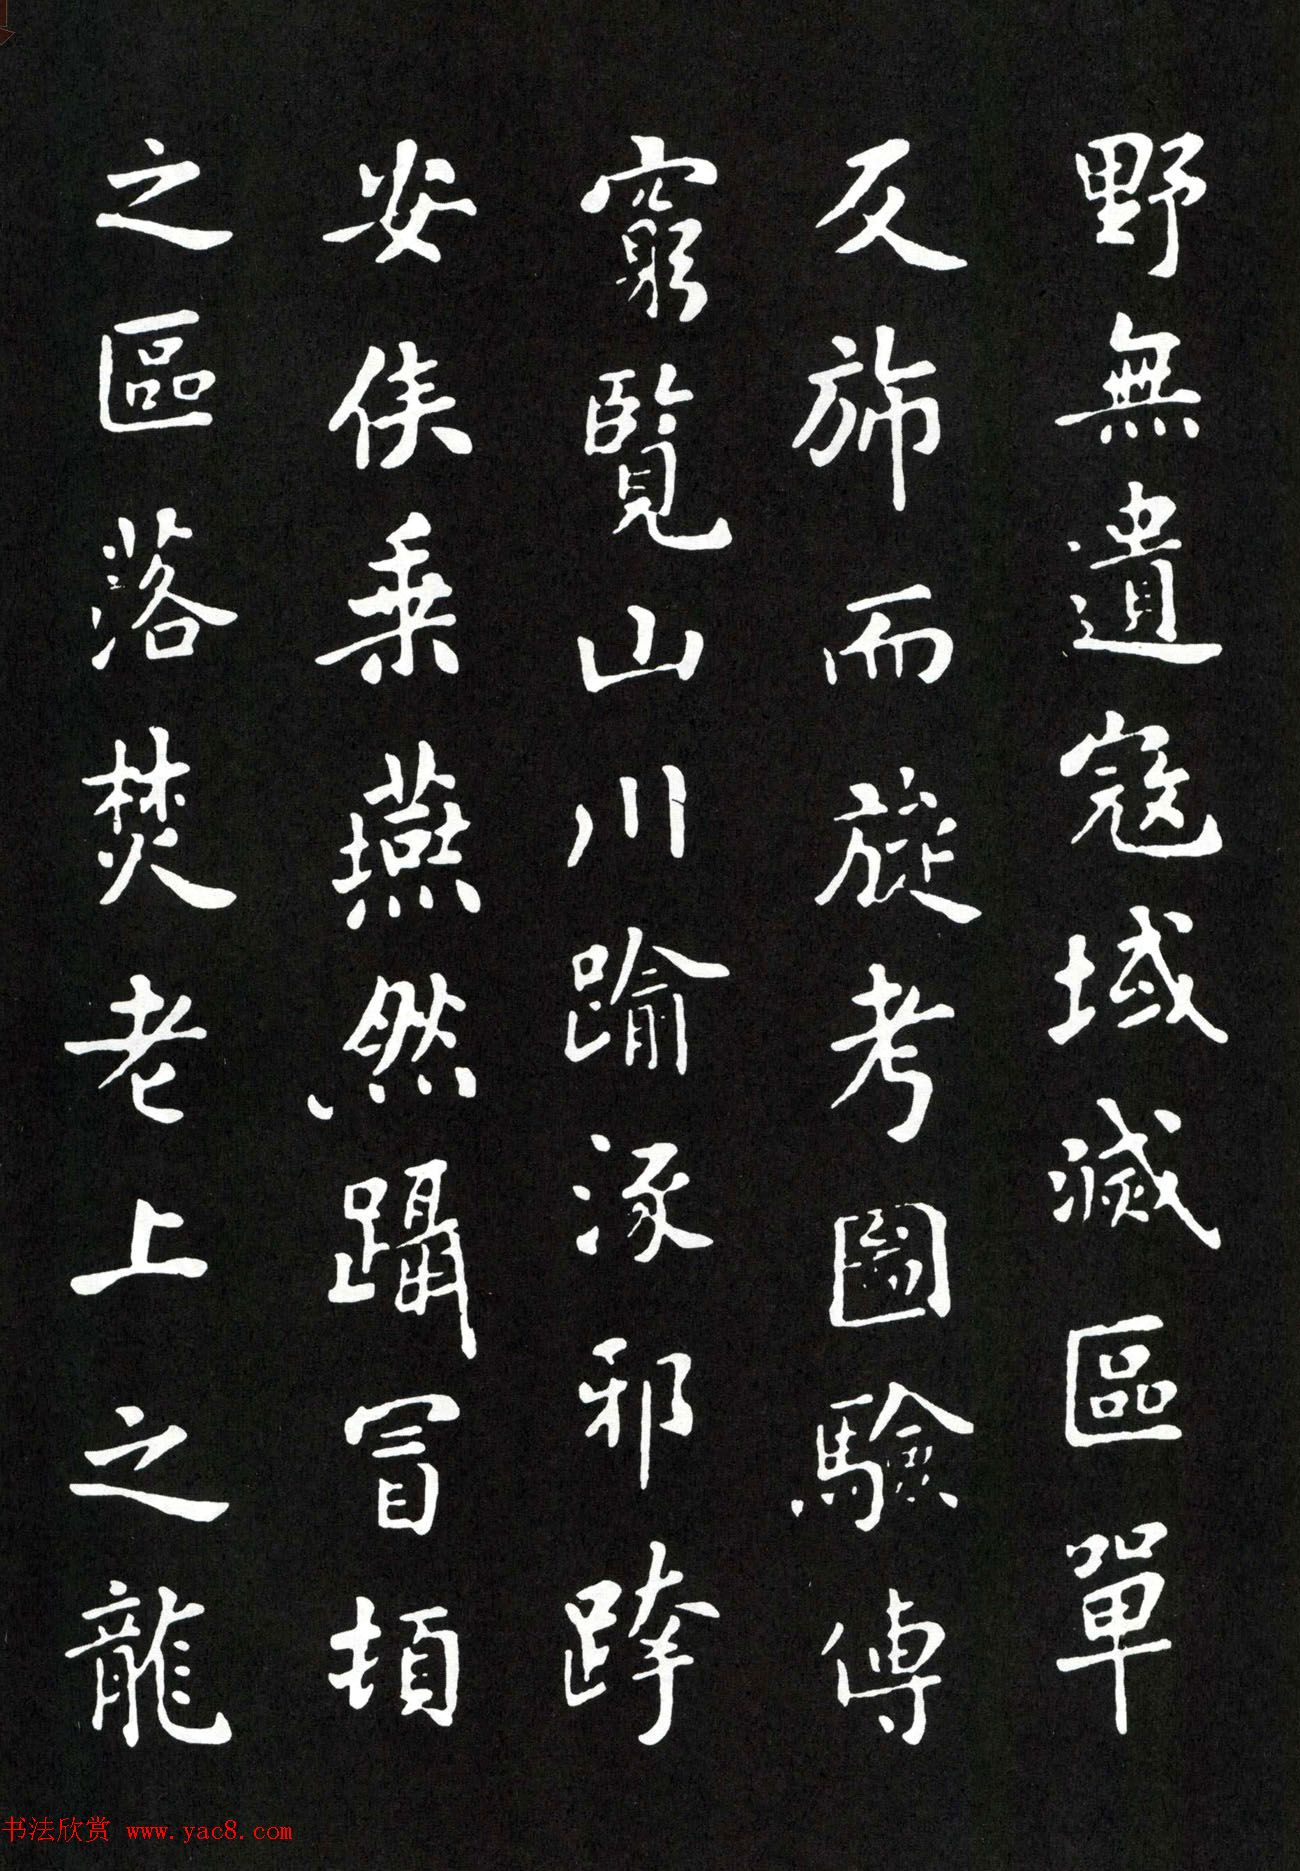 野無遺寇域滅區單
反斾而旋考圖驗傳
窮覽山川踰涿邪跨
安侯乗燕然躡冒頓
之區落焚老上之龍
书法欣赏 www.yac8.com